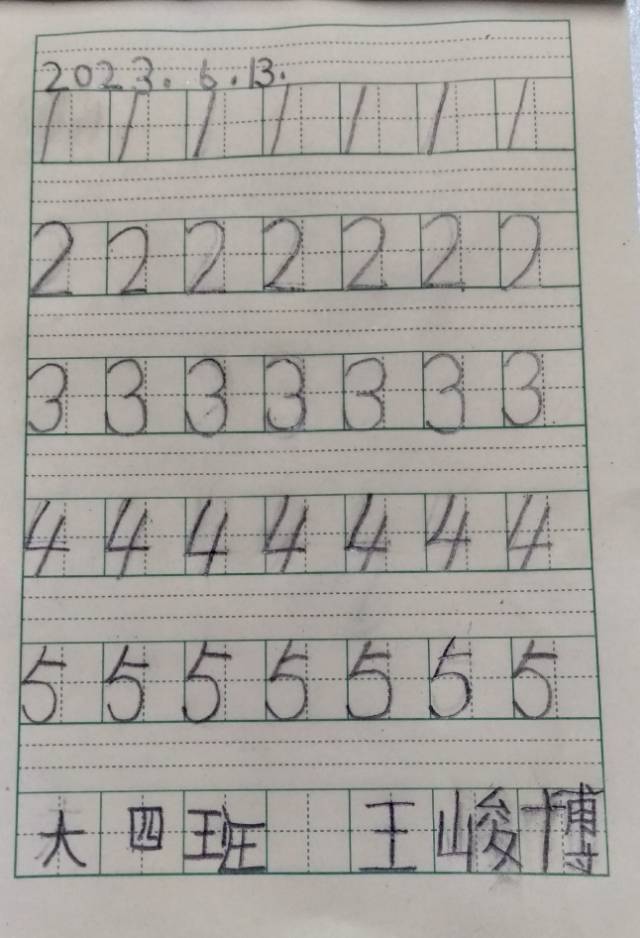 2023.6.13.
1 1 1 1 1 1 1
2 2 2 2 2 2 2
3 3 3 3 3 3 3
4 4 4 4 4 4 4
5 5 5 5 5 5 5
大四班 王峻博